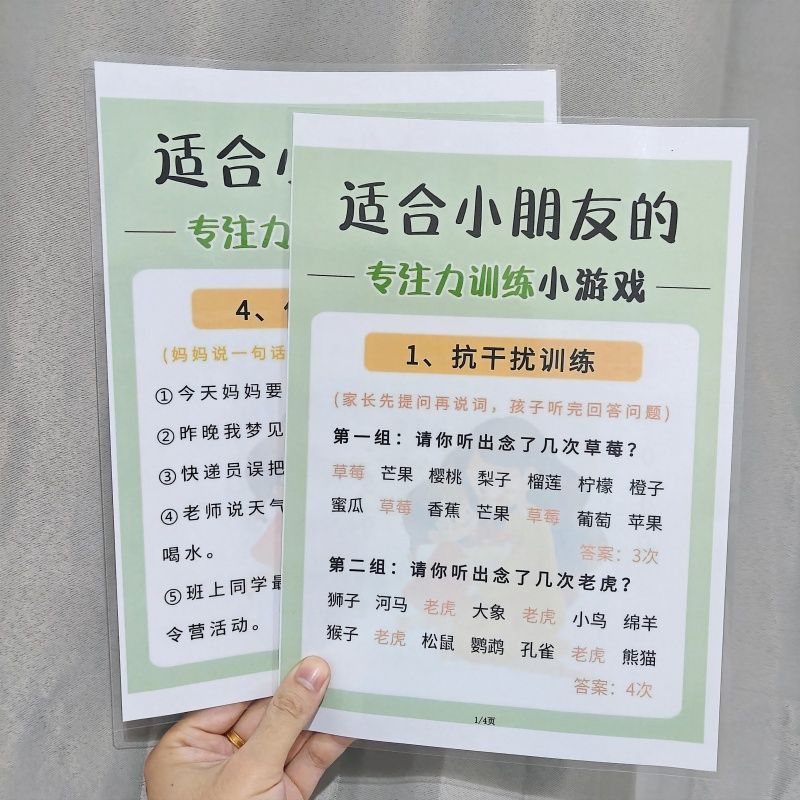 适合小
专注力
4、
(妈妈说一句话
①今天妈妈要
②昨晚我梦见
③快递员误把
④老师说天气
喝水。
⑤班上同学最
令营活动。
适合小朋友的
专注力训练小游戏
1、抗干扰训练
(家长先提问再说词，孩子听完回答问题)
第一组：请你听出念了几次草莓？
草莓 芒果 樱桃 梨子 榴莲 柠檬 橙子
蜜瓜 草莓 香蕉 芒果 草莓 葡萄 苹果
答案：3次
第二组：请你听出念了几次老虎？
狮子 河马 老虎 大象 老虎 小鸟 绵羊
猴子 老虎 松鼠 鹦鹉 孔雀 老虎 熊猫
答案：4次
1/4页